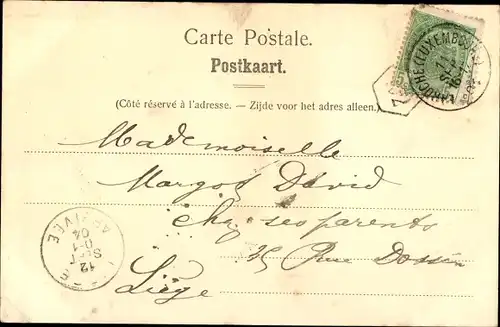 Carte Postale.
Postkaart.
(Côté réservé à l'adresse. — Zijde voor het adres alleen.)
LAROCHE (LUXEMBOURG)
Mademoiselle
Margot David
chez ses parents
35 Rue Dossin
Liége
ARRIVEE
12
SEPT
04